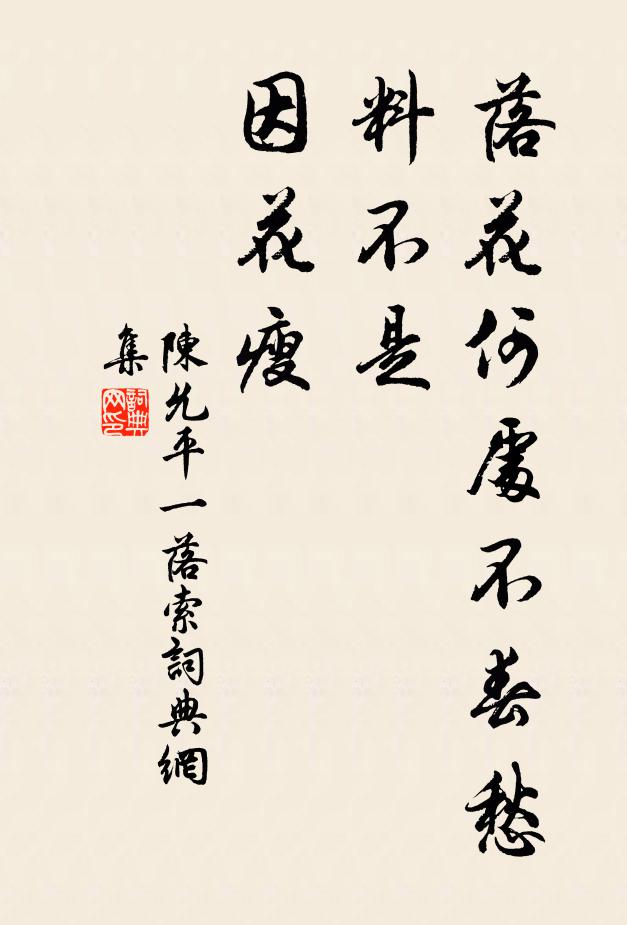 落花何處不春愁
料不是
因花瘦
陳允平一落索詞典網
集
詞典
网印